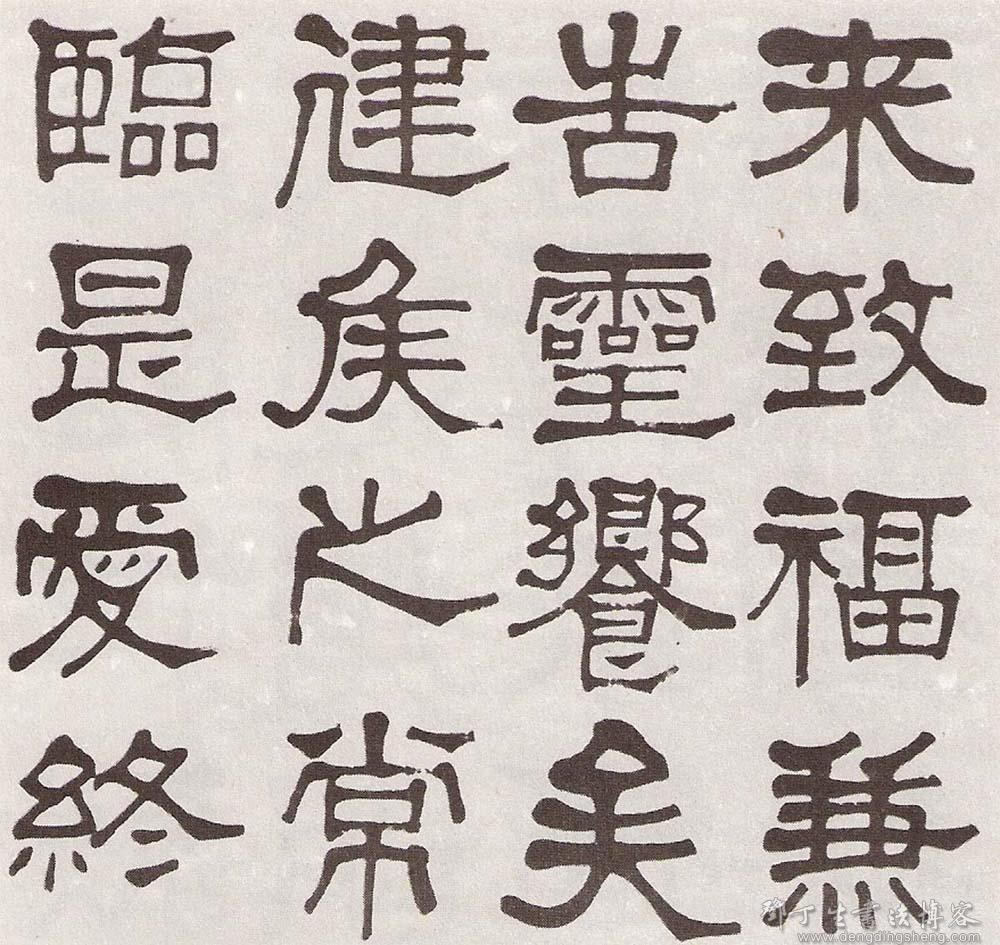 来致福兼
告靈饗矣
建侯之常
臨是愛終
鄧丁生書法博客
www.dengdingsheng.com